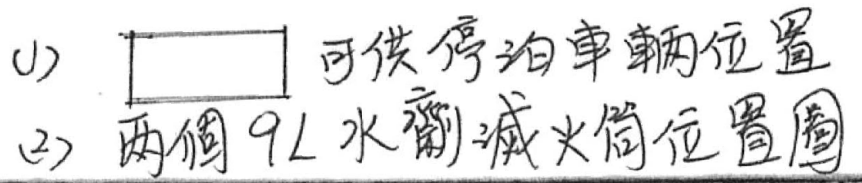 (1) 可供停泊車輛位置
(2) 两個9L水劑滅火筒位置圖